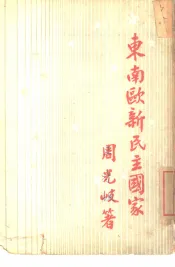 東南歐新民主國家
周光岐著